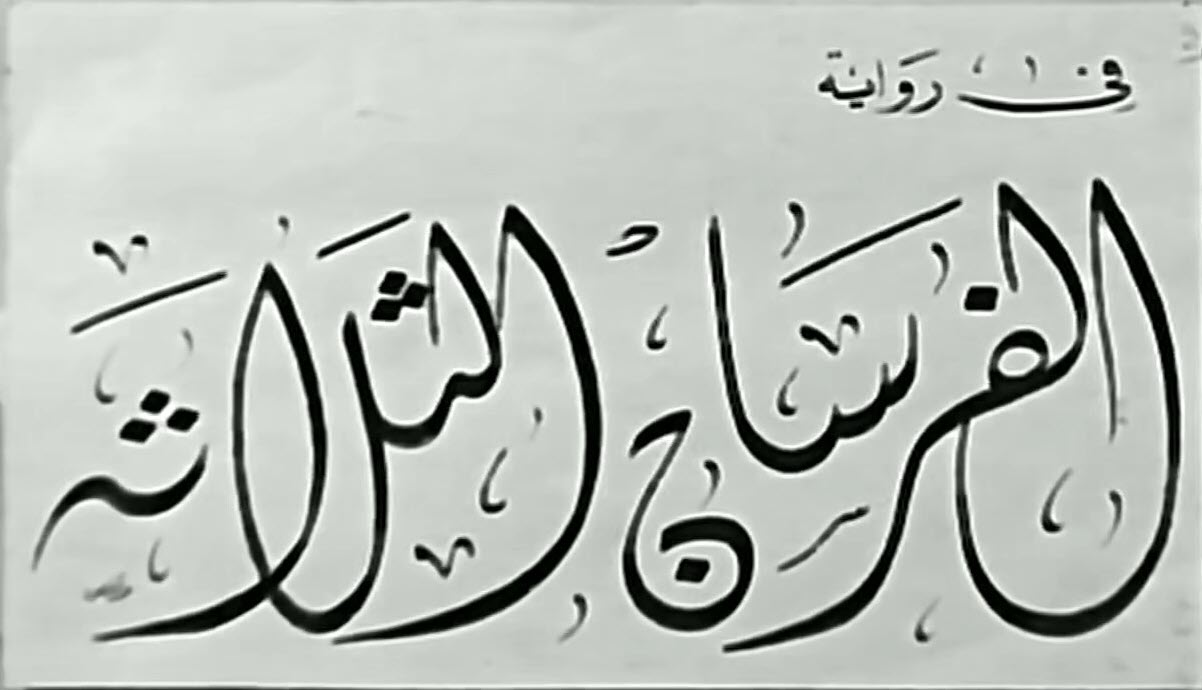 فى رواية
الفرسان الثلاثه